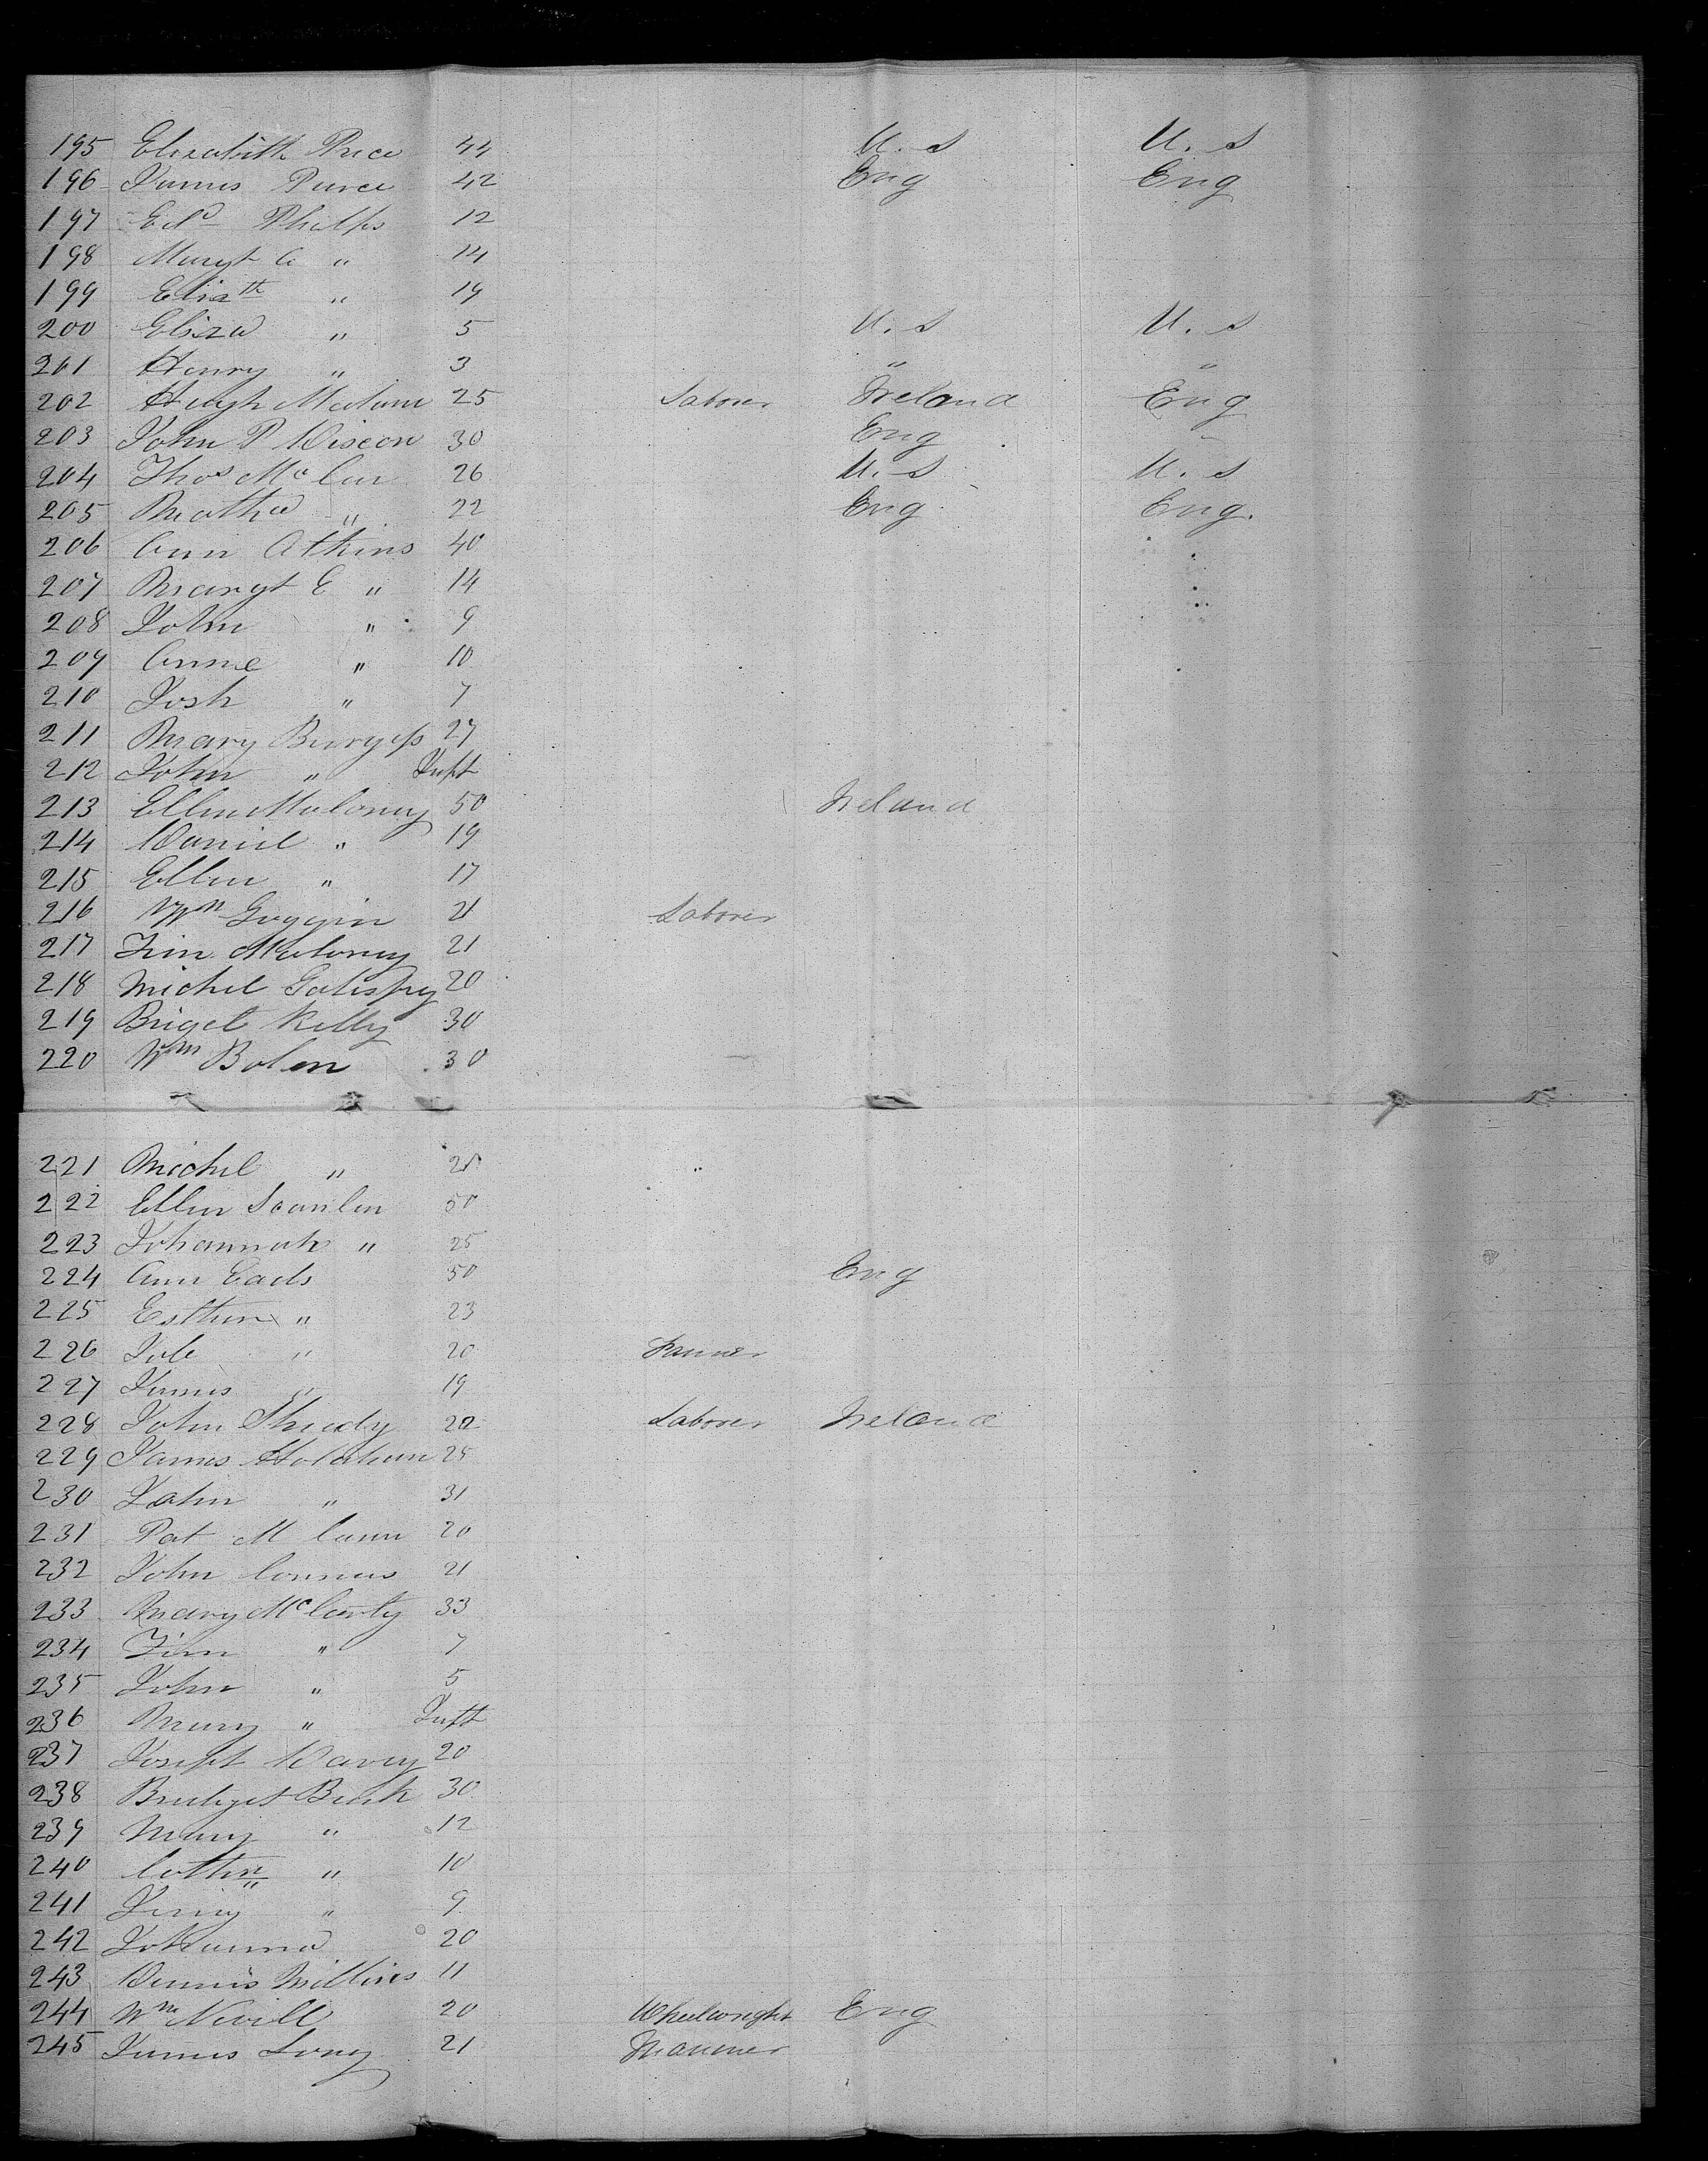 195 Elizabeth Price 44 U. S U. S
196 James Purce 42 Eng Eng
197 Edd Phelps 12
198 Margt A " 14
199 Elizth " 19
200 Eliza " 5 U. S U. S
201 Henry " 3 " "
202 Hugh 25 Laborer Ireland Eng
203 John P 30 Eng "
204 Thos Mc 26 U. S U. S
205 " 22 Eng Eng.
206 Ann Atkins 40
207 Margt E " 14
208 John " 9
209 Anne " 10
210 Josh " 7
211 Mary Burgess 27
212 John " Inft
213 Ellen Maloney 50 Ireland
214 Daniel " 19
215 Ellen " 17
216 Wm Goggin 21 Laborer
217 Tim Maloney 21
218 Michel 20
219 Briget Kelly 30
220 Wm Bolen 30
221 Michel " 20
222 Ellen Scanlen 50
223 Johannah " 25
224 Ann Eads 50 Eng
225 Esther " 23
226 Job " 20 Farmer
227 James " 19
228 John Sheedy 20 Laborer Ireland
229 James Holahan 25
230 John " 31
231 Pat M Cann 20
232 John Connors 21
233 Mary McCarty 33
234 Tim " 7
235 John " 5
236 Mary " Inft
237 Joseph Davey 20
238 Bridget 30
239 Mary " 12
240 Cathn " 10
241 " 9
242 Johanna 20
243 Dennis Millins 11
244 Wm Nevill 20 Wheelwright Eng
245 James Long 21 Mariner